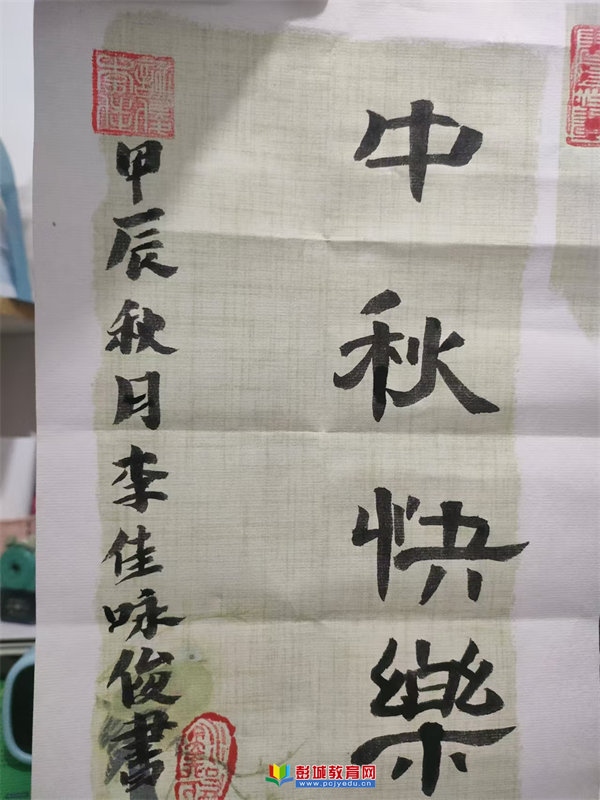 中秋快樂
甲辰秋月李佳咏俊書
彭城教育网
www.pcjyedu.cn